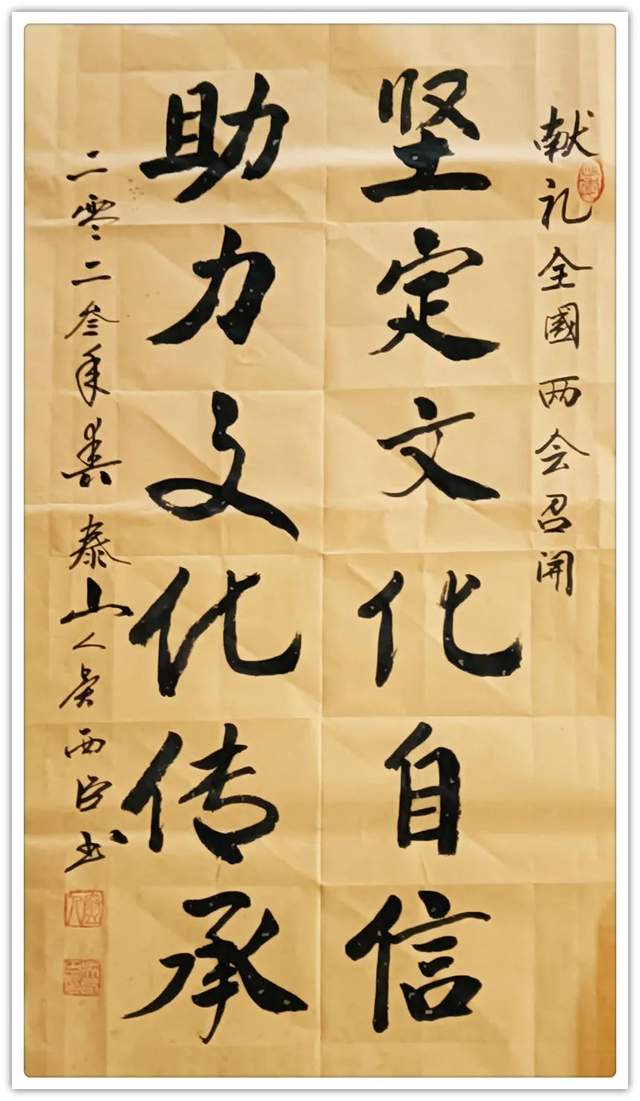 献礼全國两会召開
坚定文化自信
助力文化传承
二零二叁年春 泰山人吴西臣书